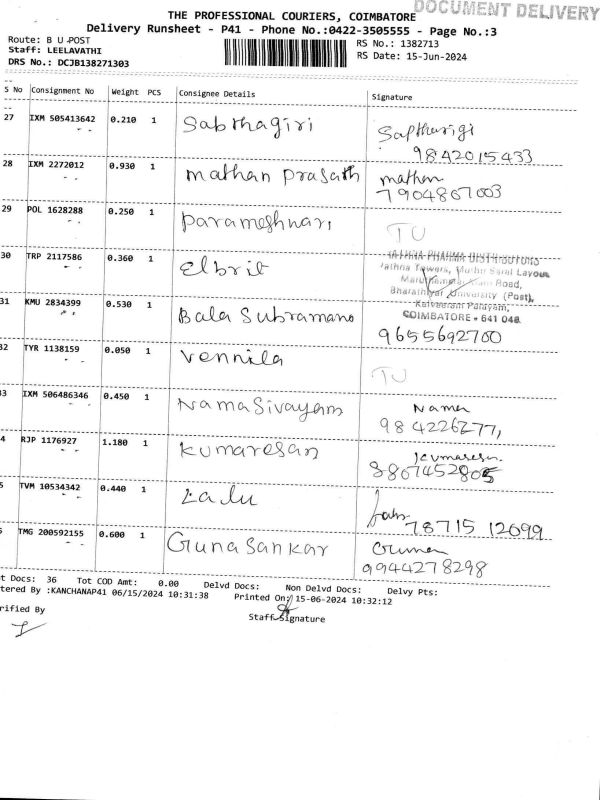 DOCUMENT DELIVERY
THE PROFESSIONAL COURIERS, COIMBATORE
Delivery Runsheet - P41 - Phone No.:0422-3505555 - Page No.:3
Route: B U-POST
RS No.: 1382713
Staff: LEELAVATHI
RS Date: 15-Jun-2024
DRS No.: DCJB138271303
S No Consignment No Weight PCS Consignee Details Signature
27 IXM 505413642 0.210 1 Sabthagiri Sapthagigi
9842015433
28 IXM 2272012 0.930 1 Mathan Prasath mathan
7904867003
29 POL 1628288 0.250 1 Parameshwari TU
30 TRP 2117586 0.360 1 Elbrit
JATHNA PHARMA DISTRIBUTORS
Jathna Towers, Layout
Road,
Bharathiyar University (Post),
Kalveeram Palayam,
COIMBATORE - 641 046
31 KMU 2834399 0.530 1 Bala Subramano 9655692700
32 TYR 1138159 0.050 1 Vennila TU
33 IXM 506486346 0.450 1 Nama Sivayam Nama
984226277,
4 RJP 1176927 1.180 1 Kumaresan Kumaresn
5 TVM 10534342 0.440 1 Lalu
78715 12099
TMG 200592155 0.600 1 Guna Sankar Guna
9944278298
t Docs: 36 Tot COD Amt: 0.00 Delvd Docs: Non Delvd Docs: Delvy Pts:
tered By :KANCHANAP41 06/15/2024 10:31:38 Printed On: 15-06-2024 10:32:12
rified By
Staff Signature